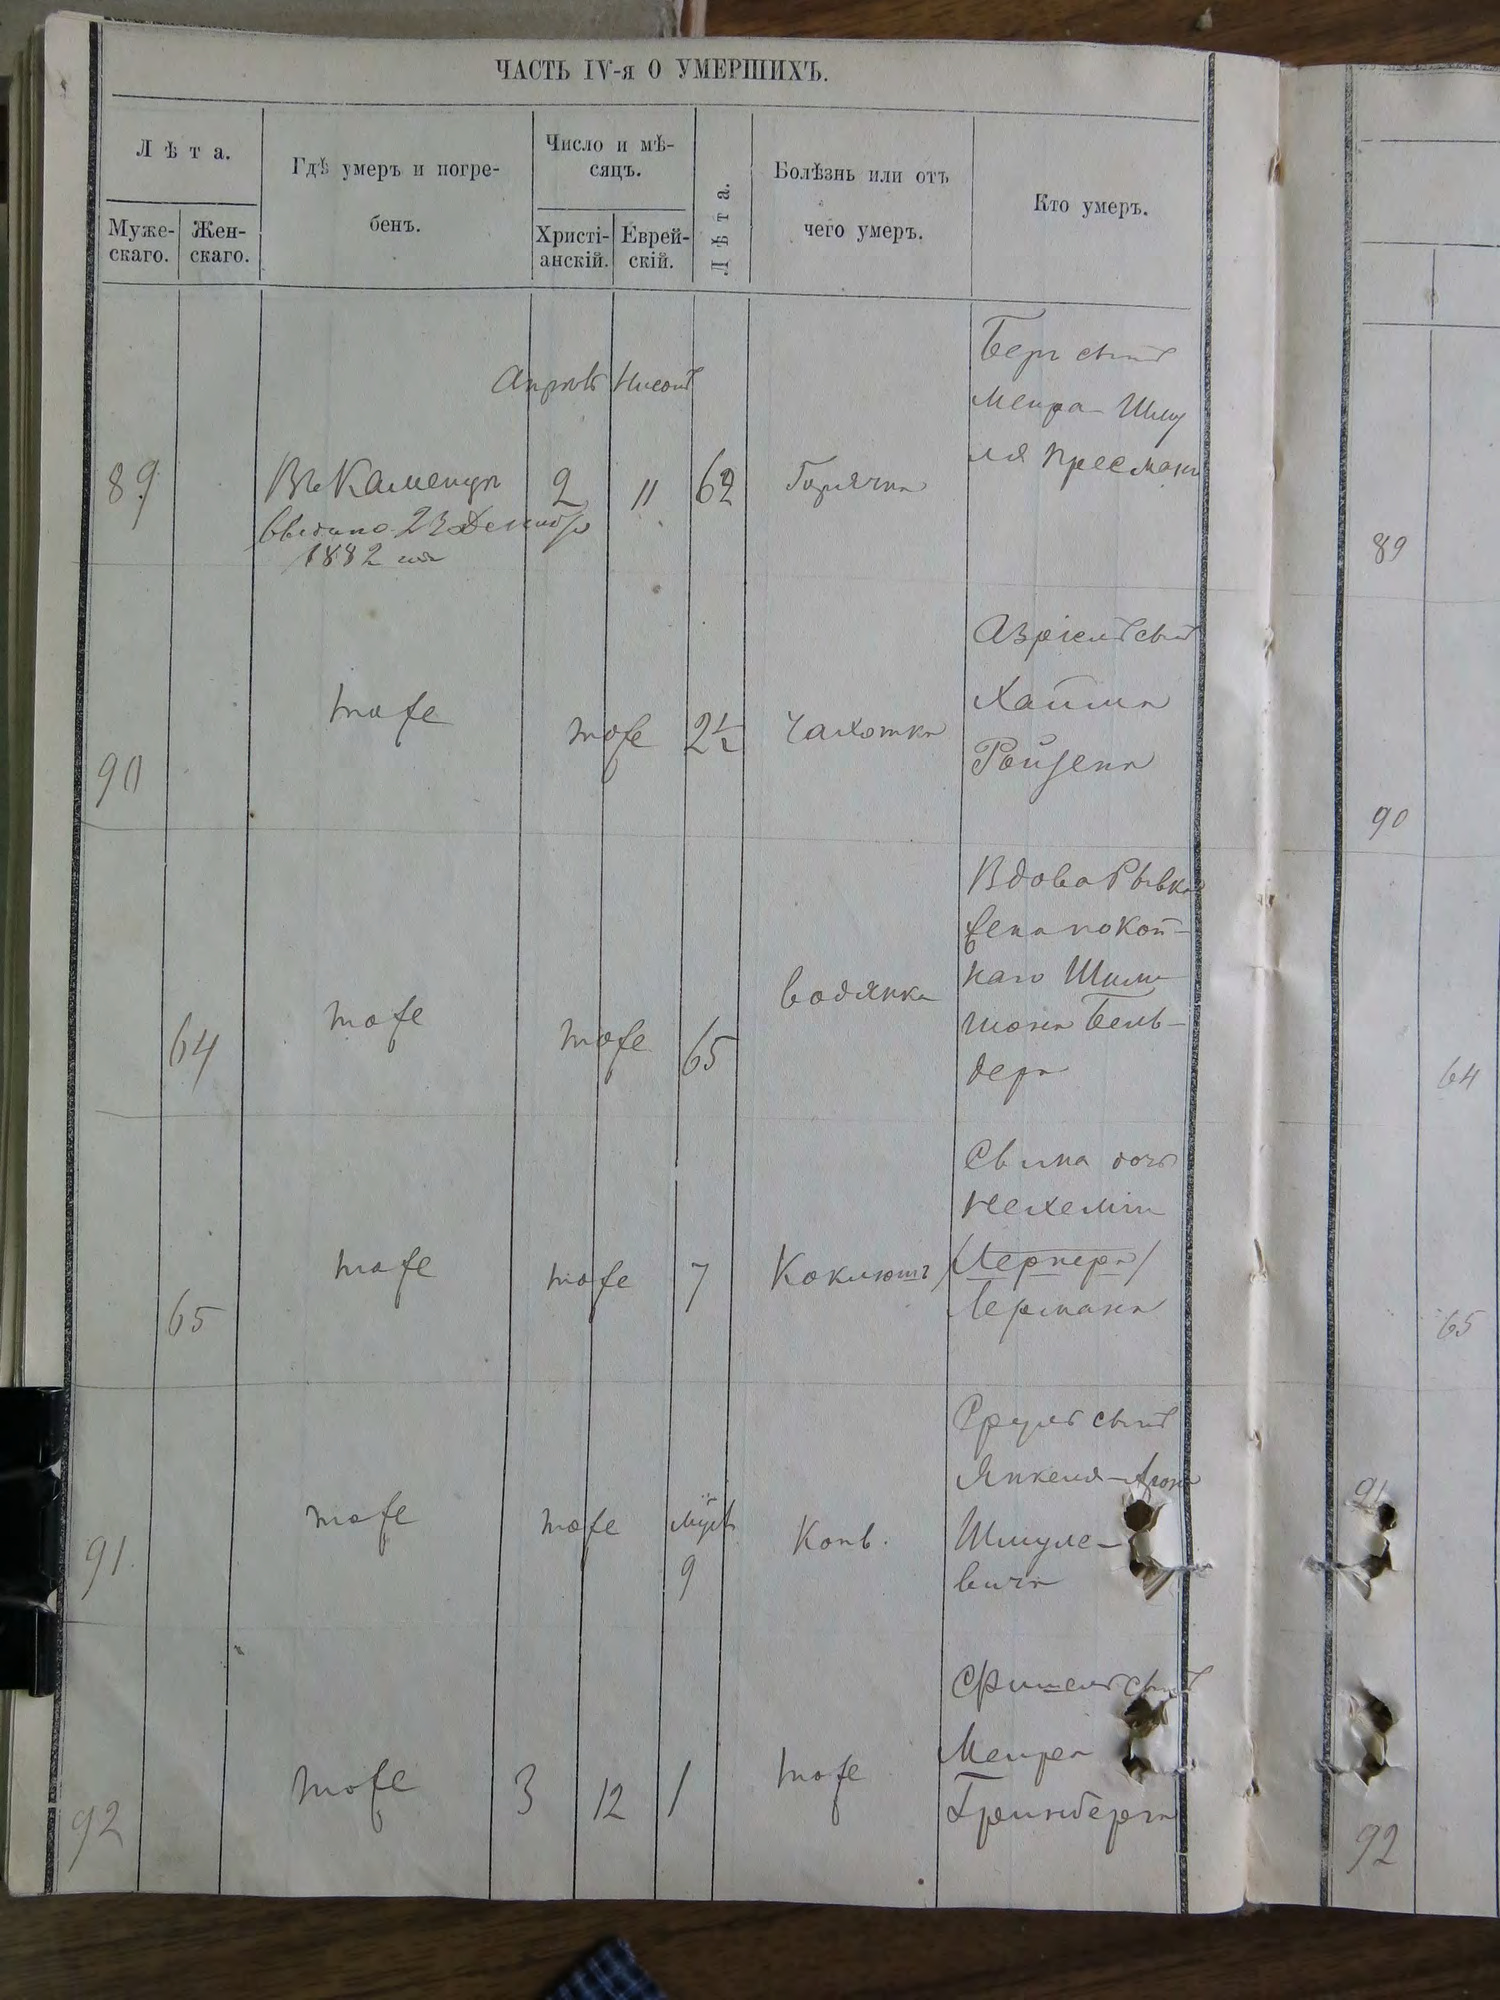 ЧАСТЬ IV-я О УМЕРШИХЪ.
Лѣта.
Муже-
скаго.
Жен-
скаго.
Гдѣ умеръ и погре-
бенъ.
Число и мѣ-
сяцъ.
Христі-
анскій.
Еврей-
скій.
Лѣта.
Болѣзнь или отъ
чего умеръ.
Кто умеръ.
Нисонъ
89
Въ Каменцѣ
1882
2
11
62
Горячка
Беръ сынъ
Меира-Шму
ля Пресмана
89
90
тоже
тоже
2½
Чахотка
Азріель сынъ
Хаима
Ройзена
90
64
тоже
тоже
65
водянка
Вдова Рывка
жена покой-
наго Шим-
шона Бель-
дера
64
65
тоже
тоже
7
Коклюшъ
дочь
Нехеміи
/Лернера/
Лермана
65
91.
тоже
тоже
9
Конв.
Сруль сынъ
Янкеля-Арона
Шмуле-
вича
91
92
тоже
3
12
1
тоже
Фишель сынъ
Меира
Гринберга
92